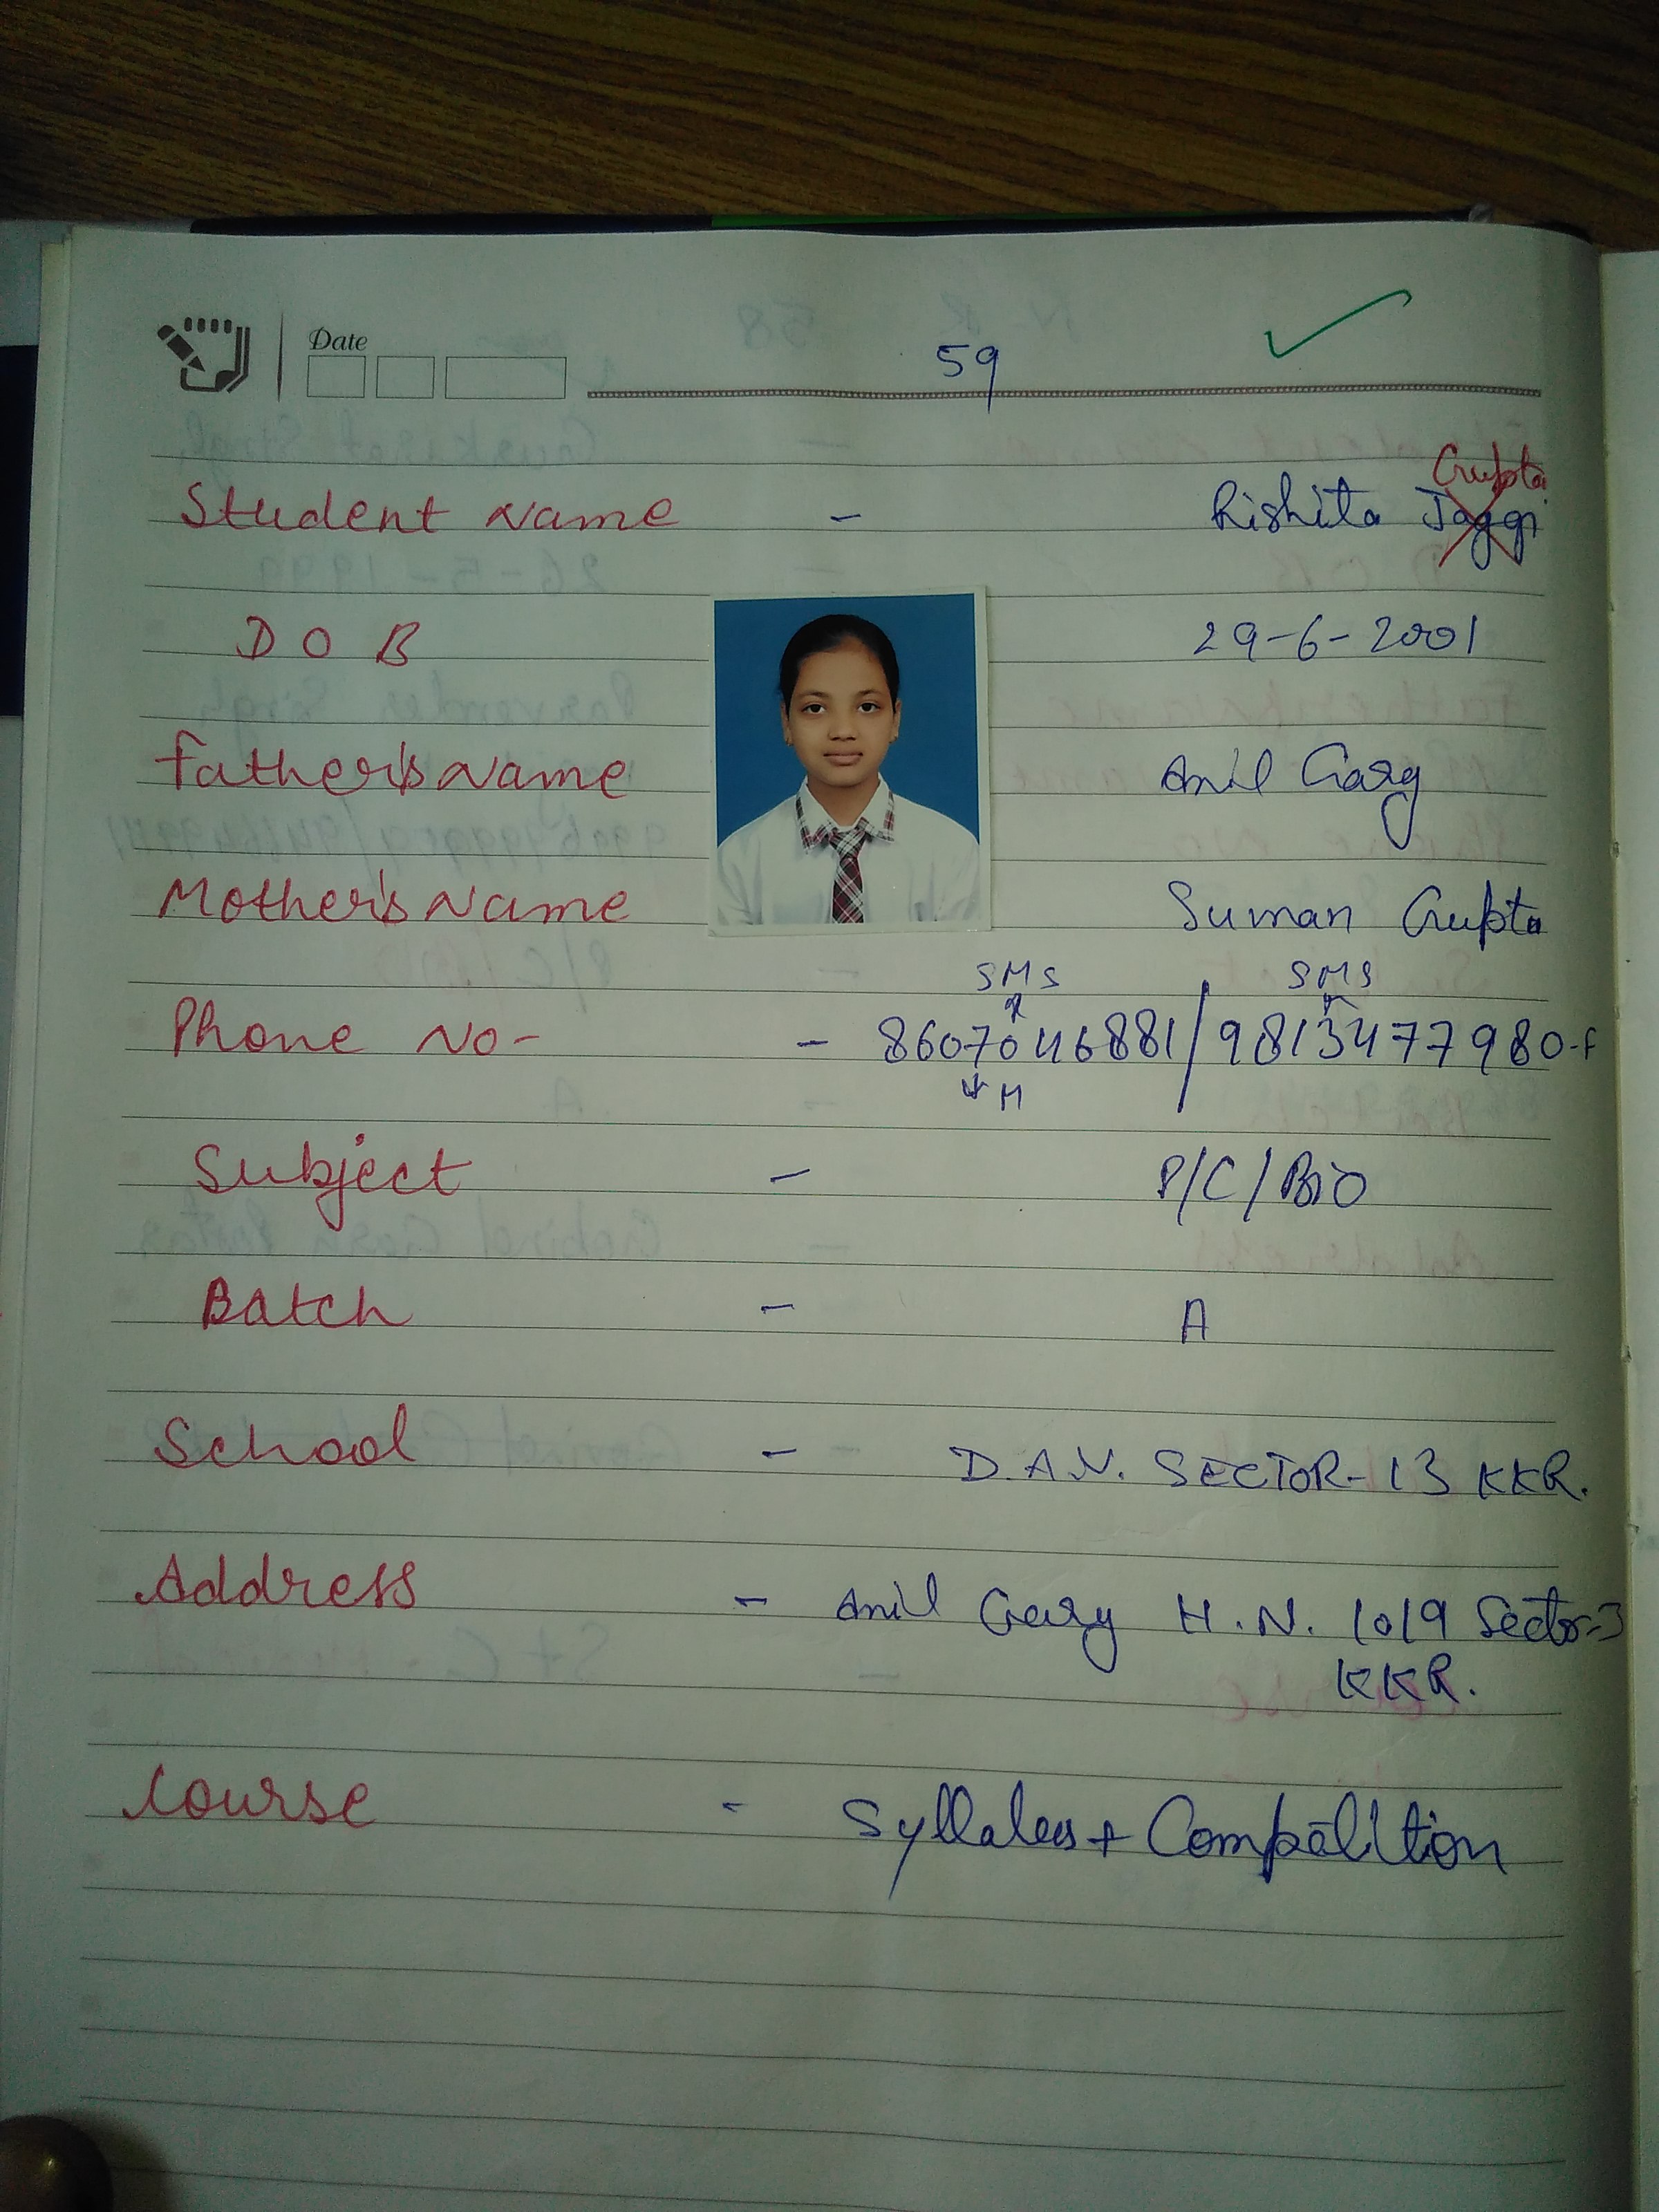 Date
59
Gupta
Student Name - Rishita Jaggi
D O B 29-6-2001
Father's Name Anil Garg
Mother's Name Suman Gupta
SMS SMS
Phone No- - 8607046881/9813477980-F
M
Subject - P/C/Bio
Batch - A
School - D.A.V. SECTOR-13 KKR.
Address - Anil Garg H.N. 1019 Sector-3
KKR.
Course - Syllabus + Competition